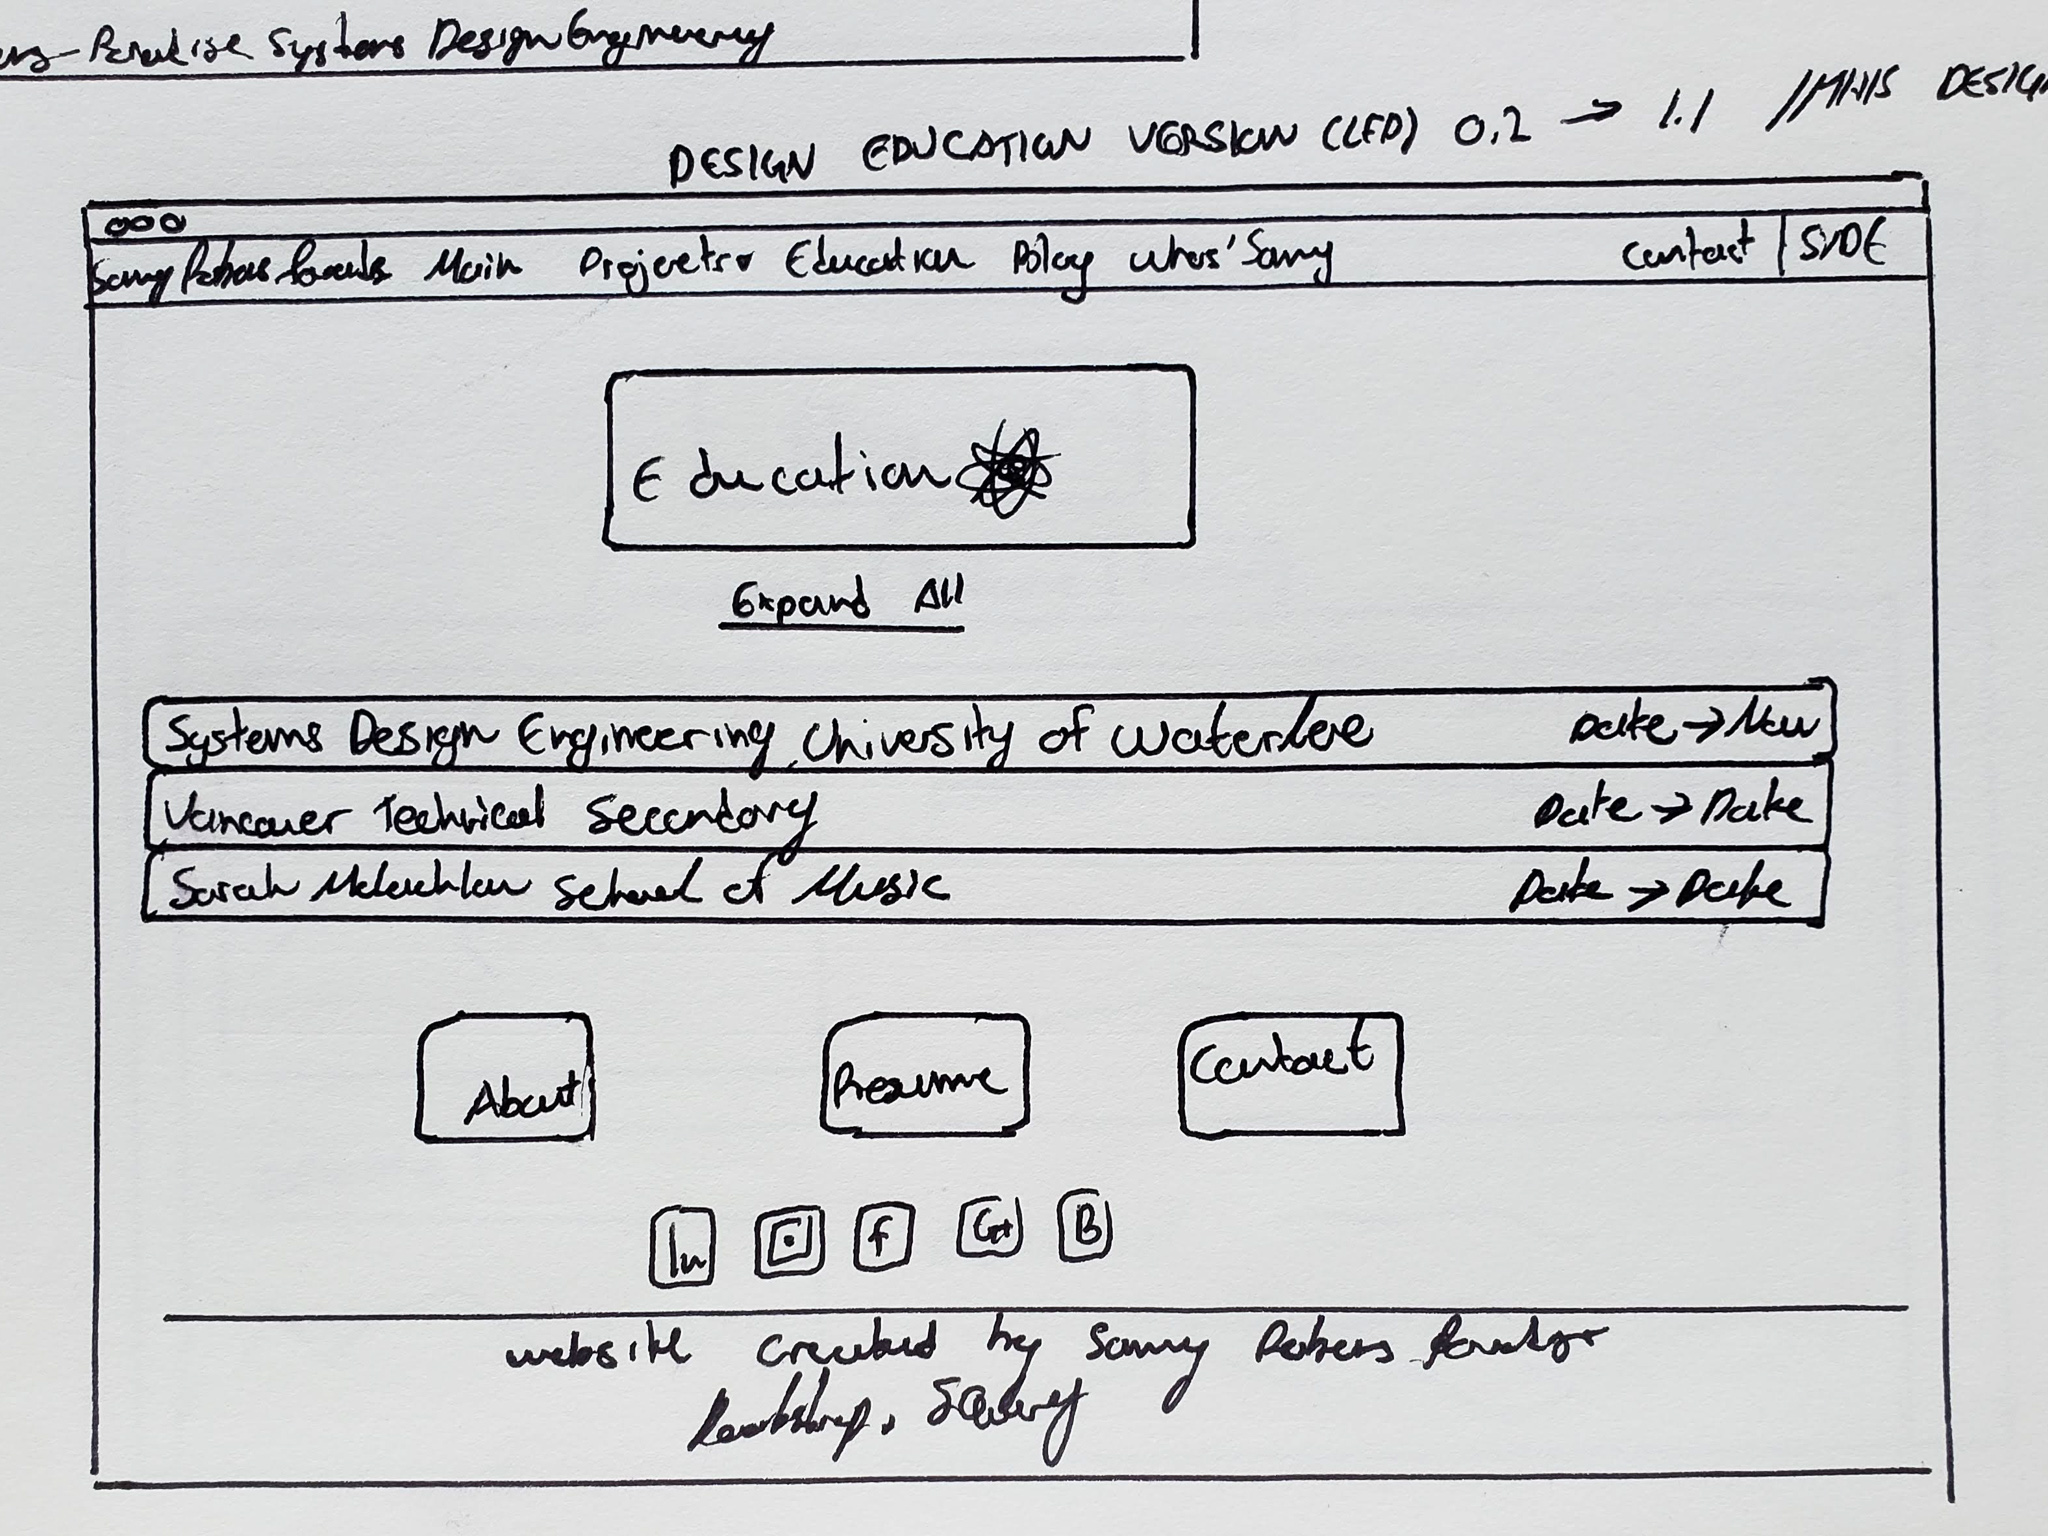 Paradise Systems Design Engineering
DESIGN EDUCATION VERSION (LFD) 0.2 → 1.1 // DESIGN
Samy Main Projects Education Policy Whos' Samy Contact | SYDE
Education
Expand All
Systems Design Engineering, University of Waterloo Date → Now
Vancouver Technical Secondary Date → Date
Sarah McLachlan School of Music Date → Date
About Resume Contact
In f G+ B
website created by Samy
Bootstrap,